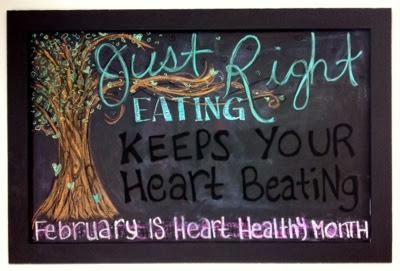 Just Right
EATING
KEEPS YOUR
Heart Beating
February IS Heart Healthy MONTH